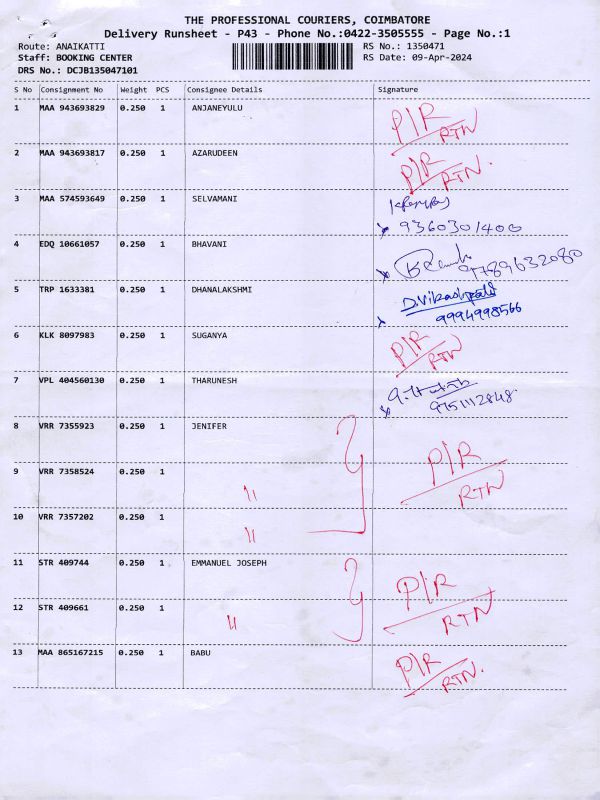 THE PROFESSIONAL COURIERS, COIMBATORE
Delivery Runsheet - P43 - Phone No.:0422-3505555 - Page No.:1
Route: ANAIKATTI RS No.: 1350471
Staff: BOOKING CENTER RS Date: 09-Apr-2024
DRS No.: DCJB135047101
S No Consignment No Weight PCS Consignee Details Signature
1 MAA 943693829 0.250 1 ANJANEYULU P/R
RTN
2 MAA 943693817 0.250 1 AZARUDEEN P/R
RTN.
3 MAA 574593649 0.250 1 SELVAMANI
9360301400
4 EDQ 10661057 0.250 1 BHAVANI
9789632080
5 TRP 1633381 0.250 1 DHANALAKSHMI
9994998566
6 KLK 8097983 0.250 1 SUGANYA P/R
RTN
7 VPL 404560130 0.250 1 THARUNESH
9751112848.
8 VRR 7355923 0.250 1 JENIFER
9 VRR 7358524 0.250 1 " P/R
RTN
10 VRR 7357202 0.250 1 "
11 STR 409744 0.250 1 EMMANUEL JOSEPH P/R
12 STR 409661 0.250 1 " RTN
13 MAA 865167215 0.250 1 BABU P/R
RTN.